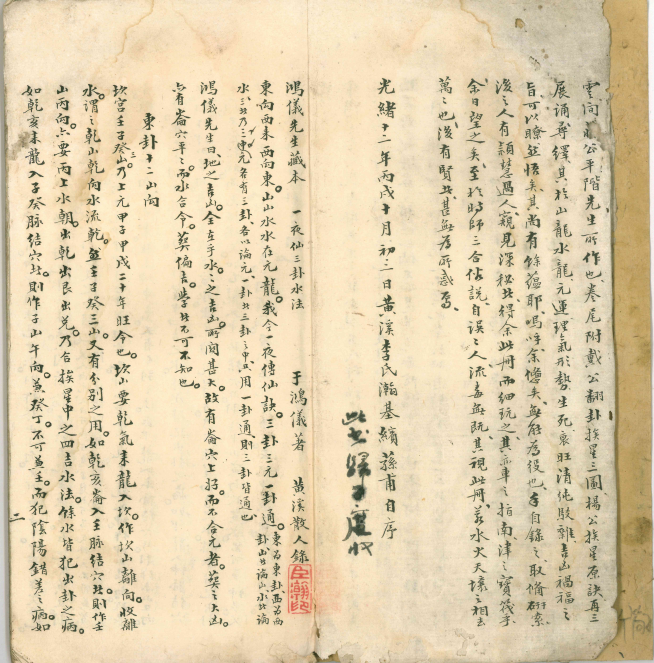 雲間蔣公平階先生所作也卷尾附戴公翻卦挨星三圖楊公挨星原訣再三
展誦尋繹其於山龍水龍元運理氣形勢生死衰旺清純駁雜吉凶禍福之
旨可以瞭然悟矣其尚有餘蘊耶嗚呼余憊矣無能為役也手自錄之取備研索
後之人有穎慧過人窺見深秘者得余此冊而細玩之其亦車之指南津之寶筏乎
余日望之矣至於時師三合俗說自誤之人流毒無既其視此冊若水火天壤之相去
萬之也後有賢者甚無為所惑焉
光緒十二年丙戌十月初三日黃溪李氏瀚基纘蓀甫自序
此書歸于廬收
鴻儀先生藏本 一夜仙三卦水法 于鴻儀著 黃溪散人錄
東向西來西向東山山水水在元龍我今一夜傳仙訣三卦三元一卦通東為東卦西為西卦山者論山水者論
水三者乃三元各有三卦各以論元一卦者三卦之中只用一卦通則三卦皆通也
鴻儀先生曰地之吉凶全在乎水水之吉凶所関甚大故有崙穴上好而不合元者葬之大凶
亦有崙穴平平而水合今葬偏吉學者不可不知也
東卦十二山向
坎宮壬子癸三山乃上元甲子甲戌二十年旺令也坎山要乾氣来龍入坎作坎山離向收離
水謂之乾山乾向水流乾然壬子癸三山又有分別之用如乾亥崙入壬脉結穴者則作壬
山丙向亦要丙上水朝出乾出艮出兌乃合挨星中之四吉水法餘水皆犯出卦之病
如乾亥来龍入子癸脉結穴者則作子山午向兼癸丁不可兼壬而犯陰陽錯差之病如
二